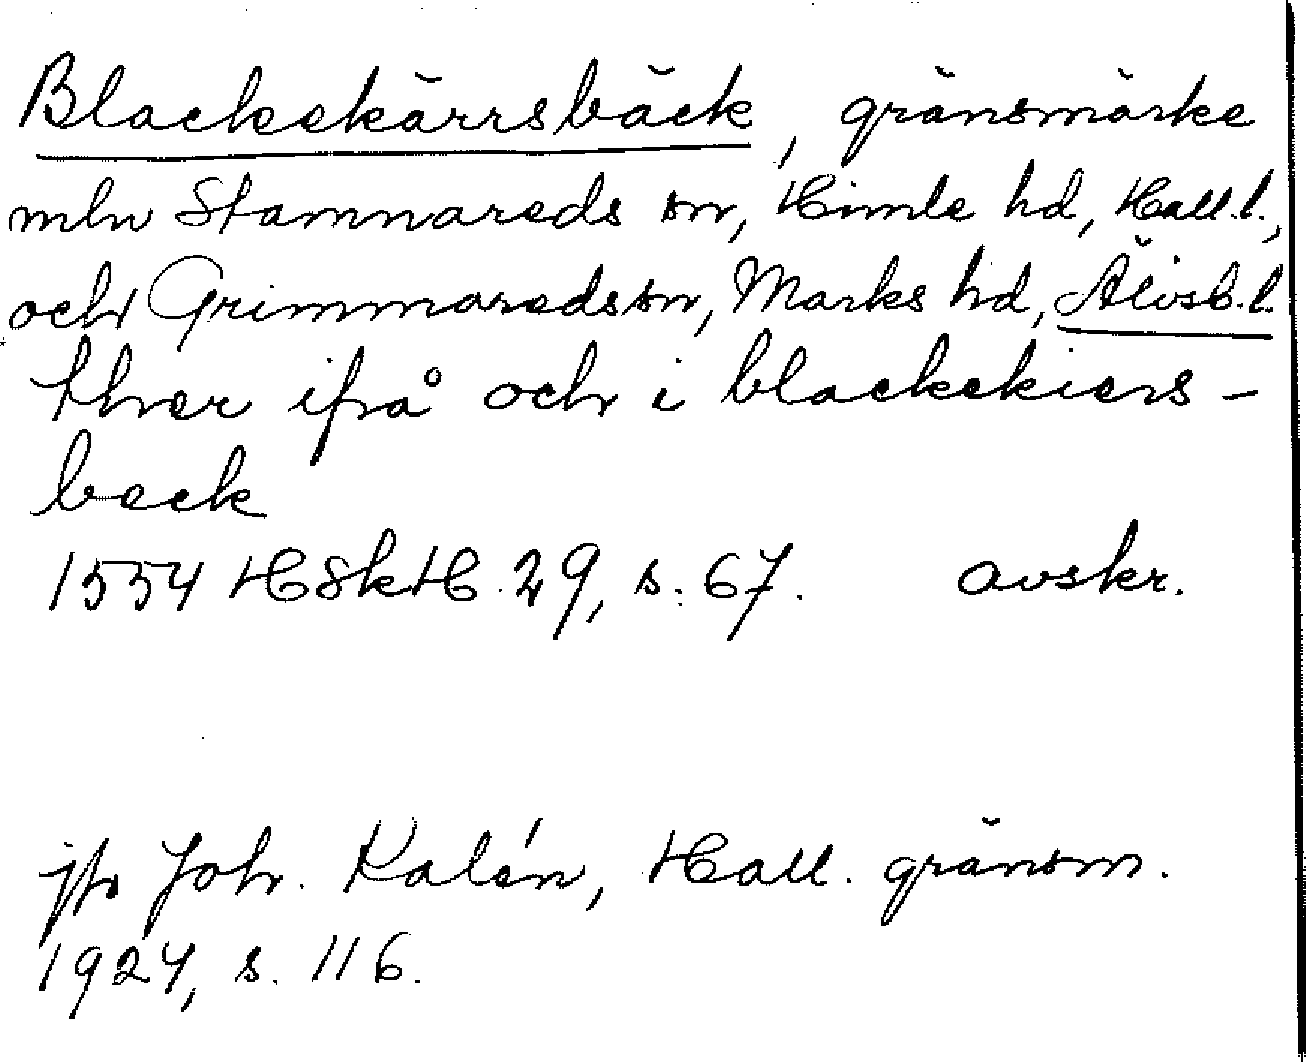 Blackekärrsbäck, gränsmärke
mln Stamnareds sn, Himle hd, Hall.l.,
och Grimmareds sn, Marks hd, Älvsb.l.
thær ifrå och i blackekiers-
beck
1554 HSkH 29, s. 67. avskr.
jfr Joh. Kalén, Hall. gränsm.
1924, s. 116.